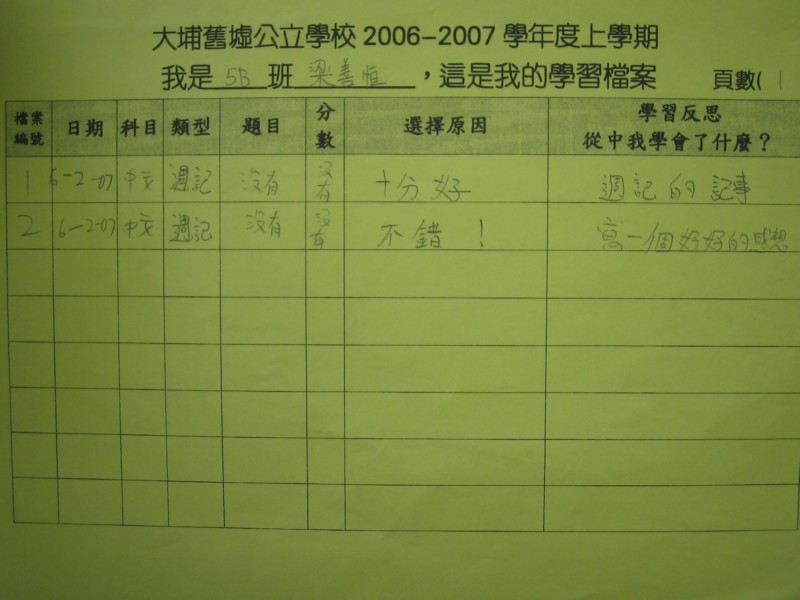 大埔舊墟公立學校 2006-2007 學年度上學期
我是 5B 班 梁善恒 ，這是我的學習檔案 頁數( 1
檔案編號 日期 科目 類型 題目 分數 選擇原因 學習反思 從中我學會了什麼？
1 6-2-07 中文 週記 沒有 沒有 十分好 週記的記事
2 6-2-07 中文 週記 沒有 沒有 不錯！ 寫一個好好的感想